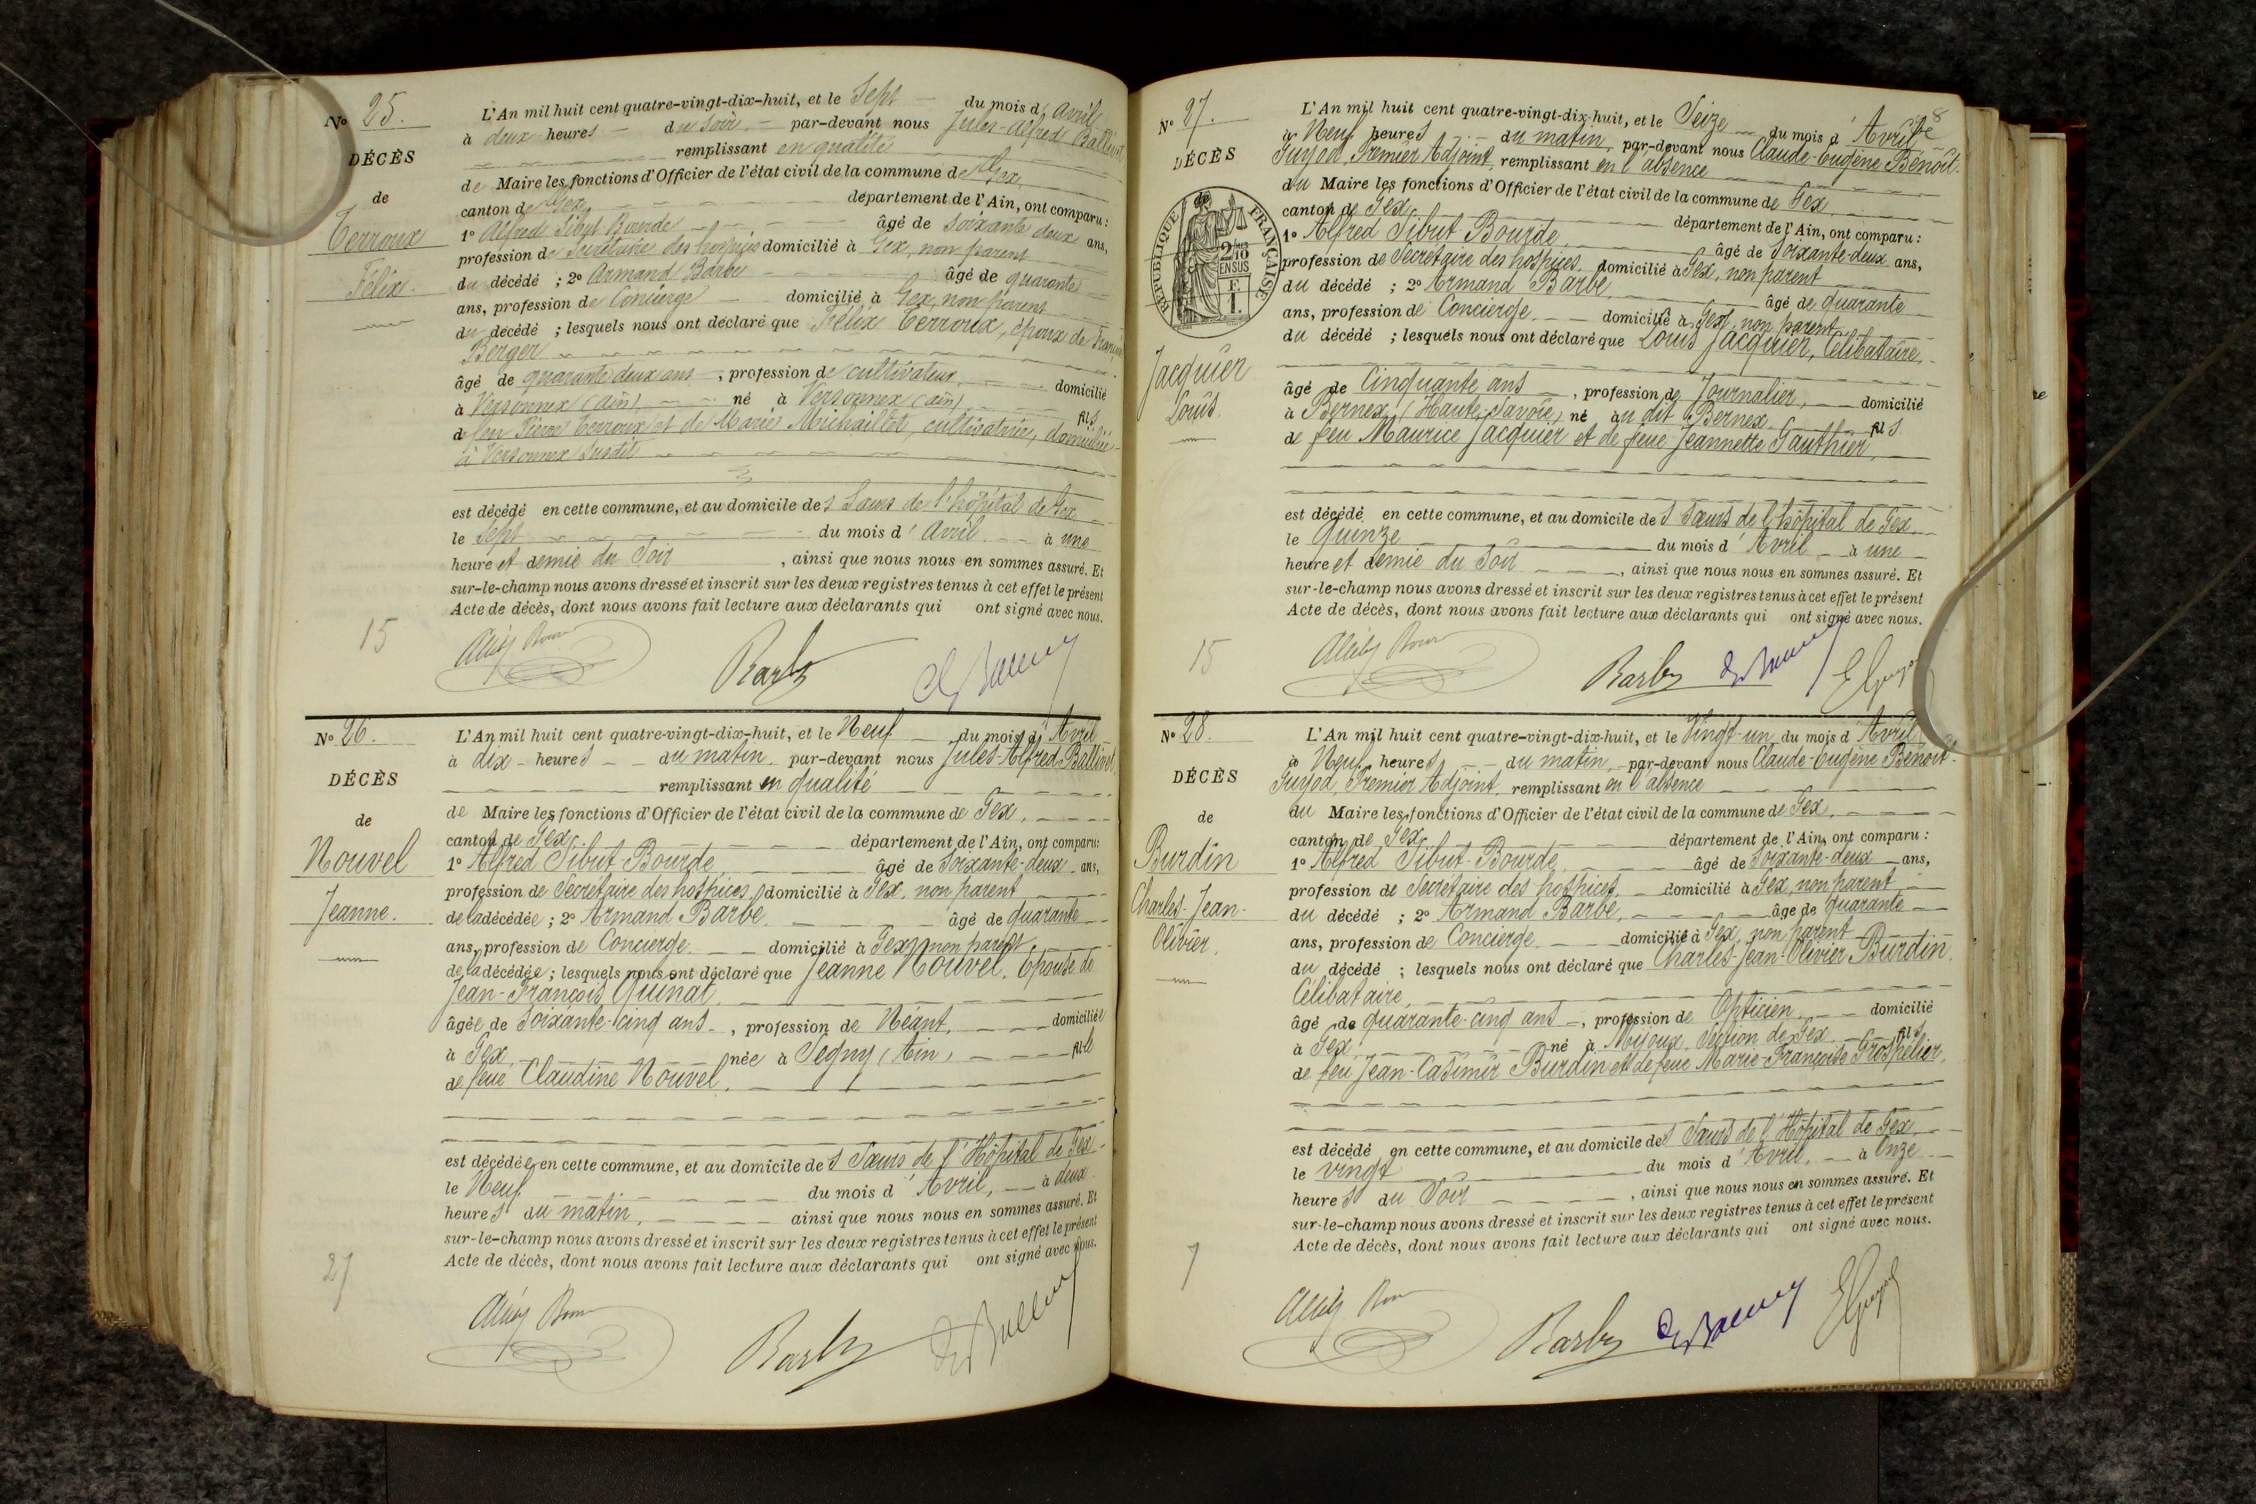 No 25.
DÉCÈS
de
Terroux
Félix.
L'An mil huit cent quatre-vingt-dix-huit, et le Sept du mois d'Avril
à deux heures du soir, par-devant nous Jules-Alfred Ballivet
remplissant en qualité
de Maire les fonctions d'Officier de l'état civil de la commune de Gex,
canton de Gex département de l'Ain, ont comparu :
1o Alfred Sibut Bourde âgé de soixante deux ans,
profession de Secrétaire des hospices domicilié à Gex, non parent
du décédé ; 2o Armand Barbe âgé de quarante
ans, profession de Concierge domicilié à Gex, non parent
du décédé ; lesquels nous ont déclaré que Félix Terroux, époux de
Berger
âgé de quarante deux ans, profession de cultivateur, domicilié
à Versonnex (Ain), né à Versonnex (Ain) fils
de feu Pierre Terroux et de Marie Michaillot, cultivatrice, domiciliée
à Versonnex susdit
est décédé en cette commune, et au domicile des Sœurs de l'hôpital de Gex
le Sept du mois d'Avril à une
heure et demie du Soir, ainsi que nous nous en sommes assuré. Et
sur-le-champ nous avons dressé et inscrit sur les deux registres tenus à cet effet le présent
Acte de décès, dont nous avons fait lecture aux déclarants qui ont signé avec nous.
15
Barbe
No 26.
DÉCÈS
de
Nouvel
Jeanne.
L'An mil huit cent quatre-vingt-dix-huit, et le Neuf du mois d'Avril
à dix heures du matin, par-devant nous Jules-Alfred Ballivet,
remplissant en qualité
de Maire les fonctions d'Officier de l'état civil de la commune de Gex,
canton de Gex, département de l'Ain, ont comparu:
1o Alfred Sibut-Bourde, âgé de Soixante-deux ans,
profession de Secrétaire des hospices, domicilié à Gex, non parent
de la décédée ; 2o Armand Barbe, âgé de quarante
ans, profession de Concierge, domicilié à Gex, non parent
de la décédée ; lesquels nous ont déclaré que Jeanne Nouvel, Epouse de
Jean-François Quinat,
âgée de Soixante-cinq ans, profession de Néant, domiciliée
à Gex née à Segny (Ain) fille
de feue Claudine Nouvel,
est décédée en cette commune, et au domicile des Sœurs de l'Hôpital de Gex
le Neuf du mois d'Avril, à deux
heures du matin, ainsi que nous nous en sommes assuré. Et
sur-le-champ nous avons dressé et inscrit sur les deux registres tenus à cet effet le présent
Acte de décès, dont nous avons fait lecture aux déclarants qui ont signé avec nous.
27
Barbe
No 27.
DÉCÈS
de
RÉPUBLIQUE FRANÇAISE
2/10
EN SUS
F.
1.
Jacquier
Louis.
8
L'An mil huit cent quatre-vingt-dix-huit, et le Seize du mois d'Avril
à Neuf heures du matin, par-devant nous Claude-Eugène Benoit-
Guyod, Premier Adjoint, remplissant en l'absence
du Maire les fonctions d'Officier de l'état civil de la commune de Gex,
canton de Gex, département de l'Ain, ont comparu :
1o Alfred Sibut Bourde, âgé de Soixante-deux ans,
profession de Secrétaire des hospices, domicilié à Gex, non parent
du décédé ; 2o Armand Barbe, âgé de quarante
ans, profession de Concierge, domicilié à Gex, non parent
du décédé ; lesquels nous ont déclaré que Louis Jacquier, Célibataire,
âgé de Cinquante ans, profession de Journalier, domicilié
à Bernex, (Haute-Savoie) né au dit Bernex. fils
de feu Maurice Jacquier et de feue Jeannette Gauthier,
est décédé en cette commune, et au domicile des Sœurs de l'hôpital de Gex,
le Quinze du mois d'Avril à une
heure et demie du Soir, ainsi que nous nous en sommes assuré. Et
sur-le-champ nous avons dressé et inscrit sur les deux registres tenus à cet effet le présent
Acte de décès, dont nous avons fait lecture aux déclarants qui ont signé avec nous.
15
Barbe
No 28.
DÉCÈS
de
Burdin
Charles-Jean-
Olivier.
L'An mil huit cent quatre-vingt-dix-huit, et le Vingt-un du mois d'Avril
à Neuf heures du matin, par-devant nous Claude-Eugène Benoit-
Guyod, Premier Adjoint, remplissant en l'absence
du Maire les fonctions d'Officier de l'état civil de la commune de Gex,
canton de Gex, département de l'Ain, ont comparu :
1o Alfred Sibut-Bourde, âgé de Soixante-deux ans,
profession de Secrétaire des hospices, domicilié à Gex, non parent
du décédé ; 2o Armand Barbe, âgé de quarante
ans, profession de Concierge, domicilié à Gex, non parent
du décédé ; lesquels nous ont déclaré que Charles-Jean-Olivier Burdin,
Célibataire,
âgé de quarante-cinq ans, profession de Opticien, domicilié
à Gex, né à Mijoux, Section de Gex fils
de feu Jean-Casimir Burdin et de feue Marie-Françoise Grospelier,
est décédé en cette commune, et au domicile des Sœurs de l'Hôpital de Gex,
le vingt du mois d'Avril, à Onze
heures du Soir, ainsi que nous nous en sommes assuré. Et
sur-le-champ nous avons dressé et inscrit sur les deux registres tenus à cet effet le présent
Acte de décès, dont nous avons fait lecture aux déclarants qui ont signé avec nous.
7
Barbe